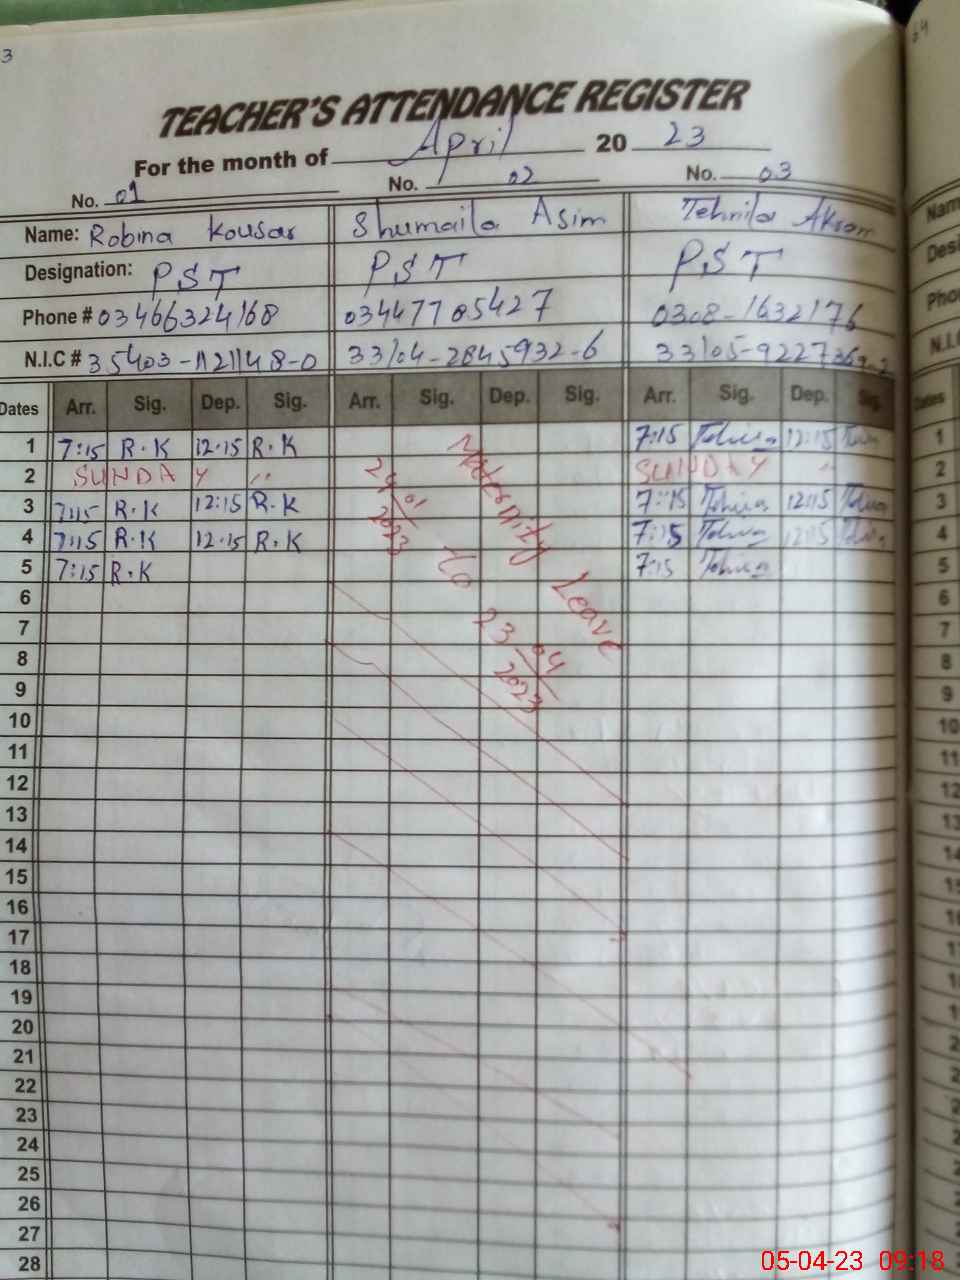 3
04
TEACHER'S ATTENDANCE REGISTER
For the month of April 20 23
No. 01 No. 02 No. 03
Name: Robina Kousar Shumaila Asim Tehnila Akram
Designation: PST PST PST
Phone # 03466324168 03447705427 0308-1632176
N.I.C # 33104-2845932-6
Dates Arr. Sig. Dep. Sig. Arr. Sig. Dep. Sig. Arr. Sig. Dep. Sig.
1 7:15 R.K 12:15 R.K 7:15 12:15
2 SUNDAY " SUNDAY "
3 7:15 R.K 12:15 R.K 7:15 12:15
4 7:15 R.K 12:15 R.K 7:15 12:15
5 7:15 R.K 7:15
Maternity Leave
24/01/2023 to 23/04/2023
6
7
8
9
10
11
12
13
14
15
16
17
18
19
20
21
22
23
24
25
26
27
28
05-04-23 09:18